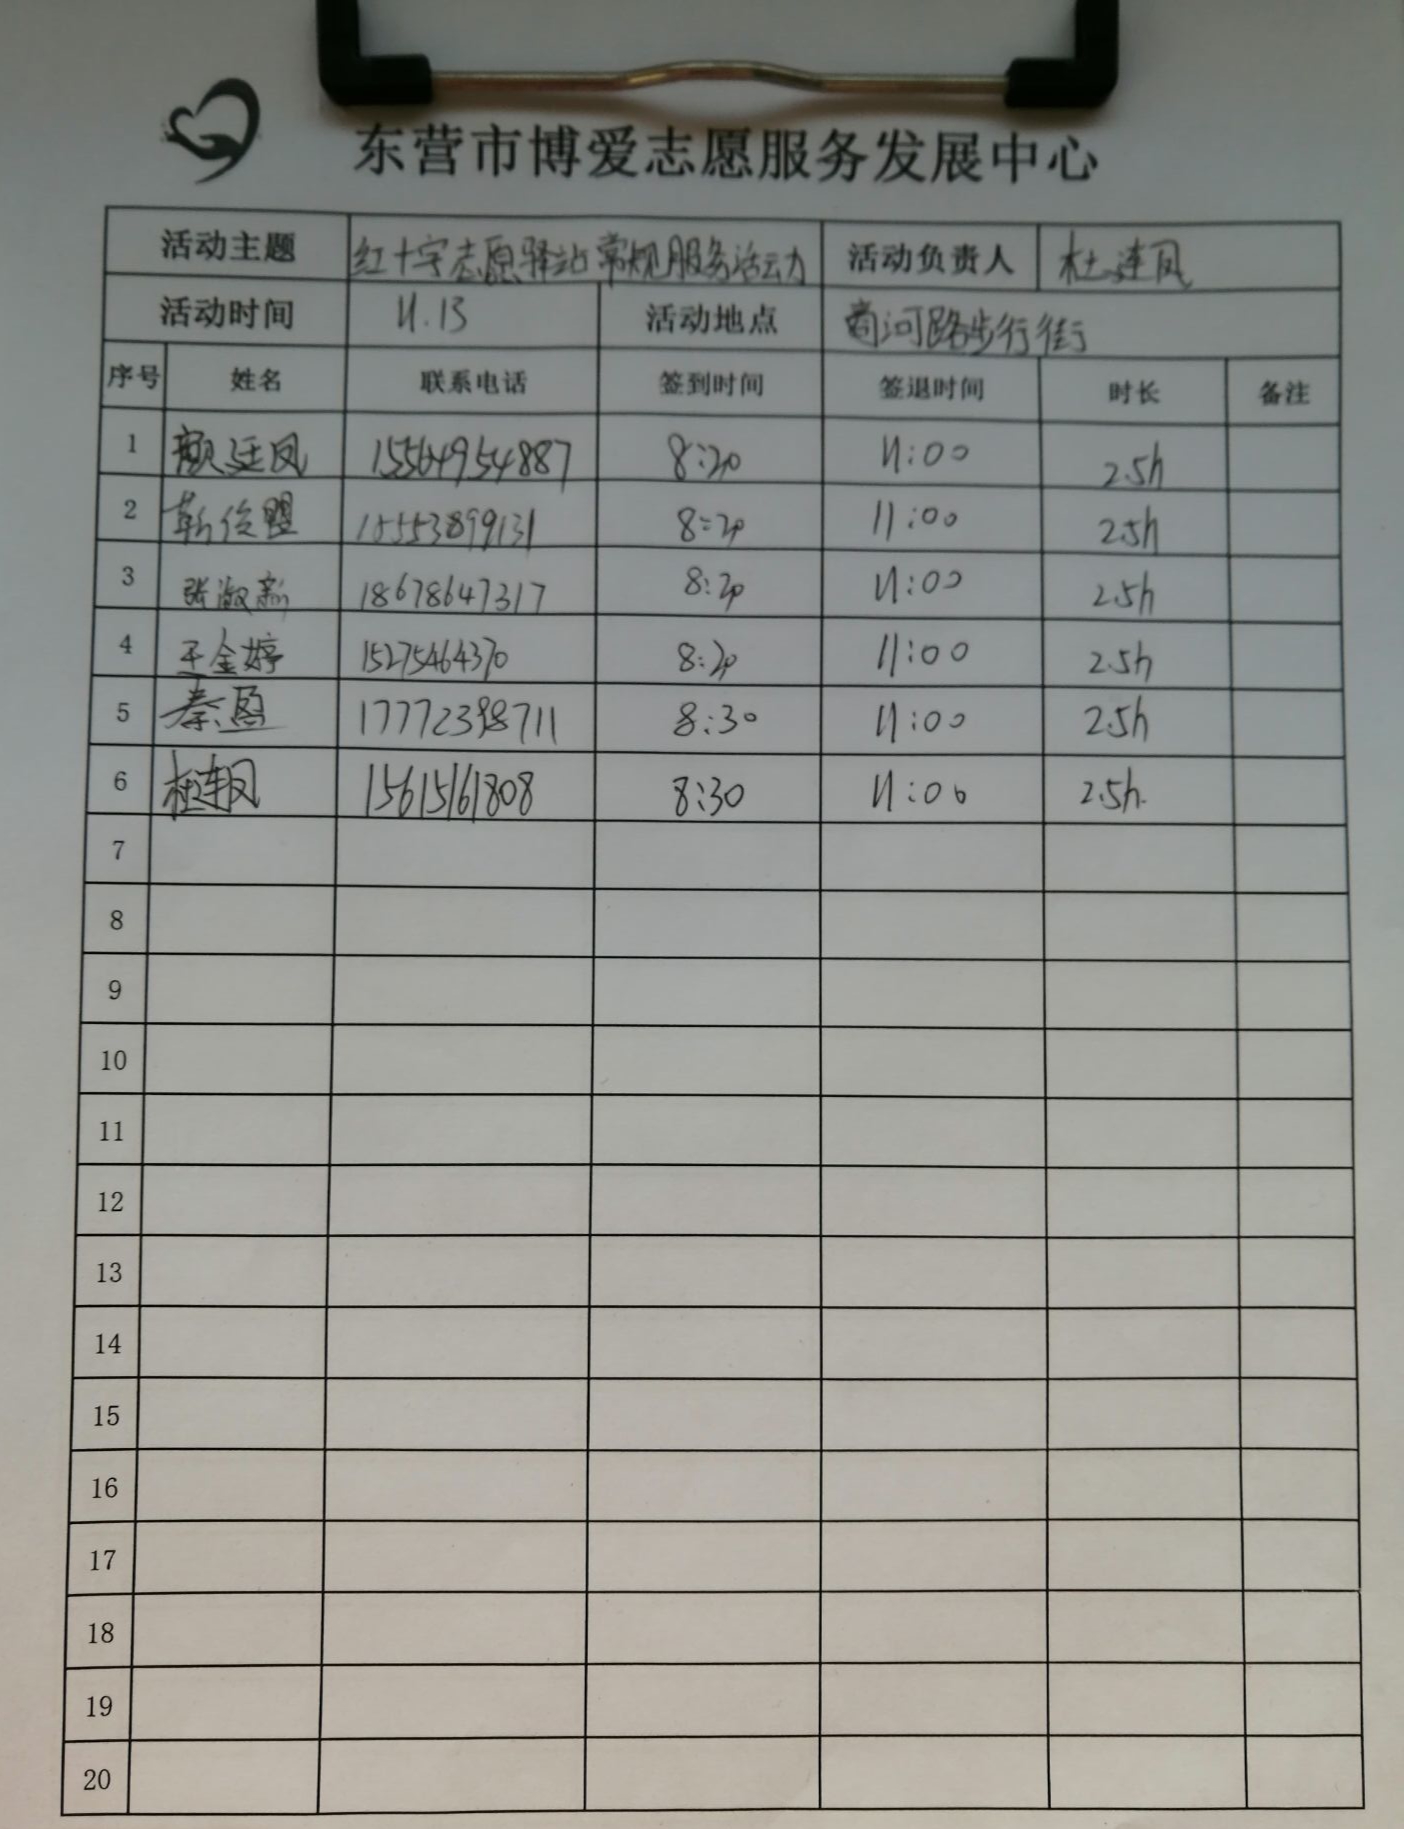 东营市博爱志愿服务发展中心
活动主题 红十字志愿驿站常规服务活动 活动负责人 杜连凤
活动时间 11.13 活动地点 商河路步行街
序号 姓名 联系电话 签到时间 签退时间 时长 备注
1 颜廷凤 15564954887 8:20 11:00 2.5h
2 靳俊盟 8:20 11:00 2.5h
3 张淑新 18678647317 8:20 11:00 2.5h
4 王金婷 15275464370 8:20 11:00 2.5h
5 秦盈 17772398711 8:30 11:00 2.5h
6 杜连凤 15615161808 8:30 11:00 2.5h.
7
8
9
10
11
12
13
14
15
16
17
18
19
20